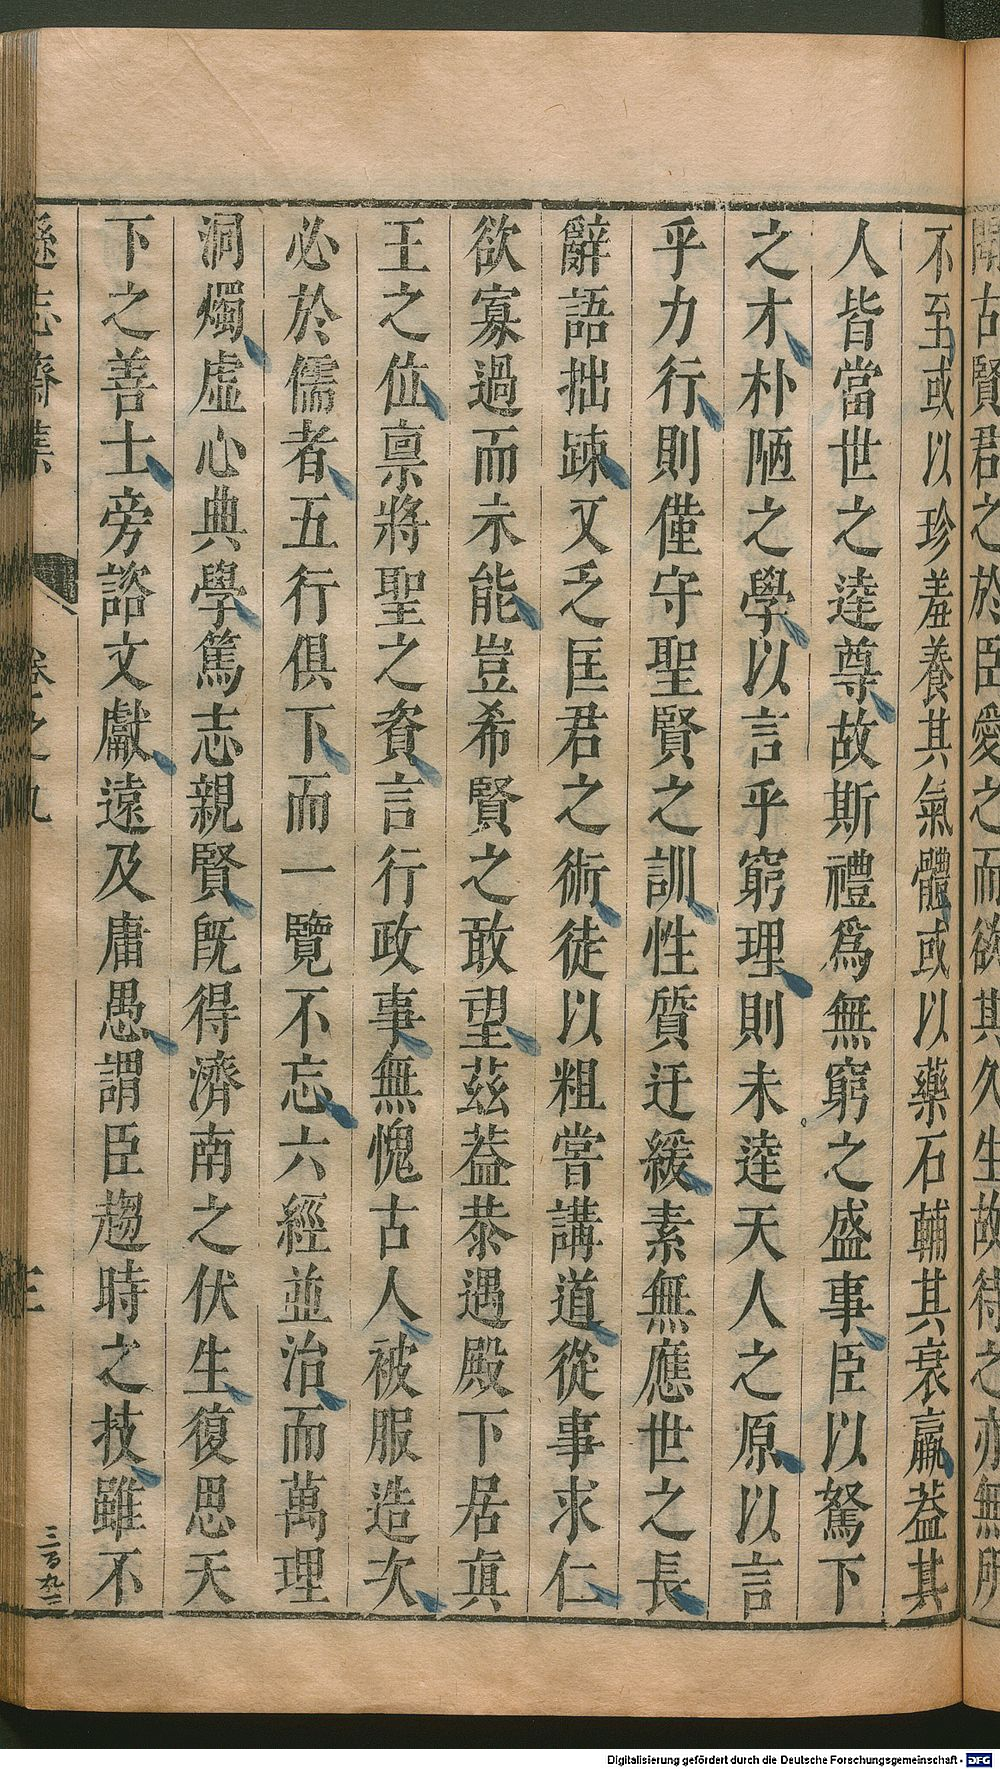 聞古賢君之於臣愛之而欲其久生故待之亦無所
不至或以珍羞養其氣體或以藥石輔其衰羸葢其
人皆當世之逵尊故斯禮爲無窮之盛事臣以駑下
之才朴陋之學以言乎窮理則未逹天人之原以言
乎力行則僅守聖賢之訓性質迂緩素無應世之長
辭語拙踈又乏匡君之術徒以粗嘗講道從事求仁
欲寡過而未能豈希賢之敢望茲葢恭遇殿下居眞
王之位禀將聖之資言行政事無愧古人被服造次
必於儒者五行俱下而一覽不忘六經並治而萬理
洞燭虛心典學篤志親賢旣得濟南之伏生復思天
下之善士旁諮文獻遠及庸愚謂臣趨時之技雖不
遜志齋集 卷之九 三
三百九二
Digitalisierung gefördert durch die Deutsche Forschungsgemeinschaft - DFG